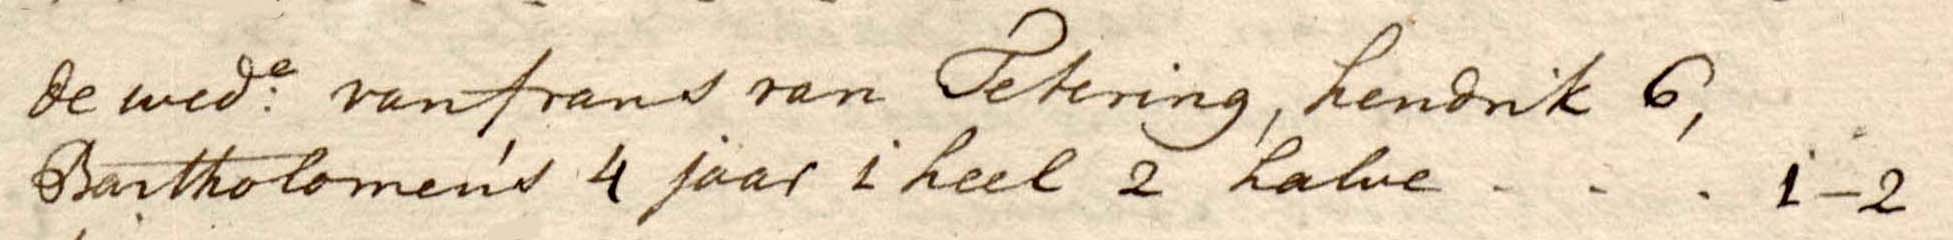 de wed:e van frans van Tetering, hendrik 6,
Bartholomeús 4 jaar 1 heel 2 halve - - . 1-2